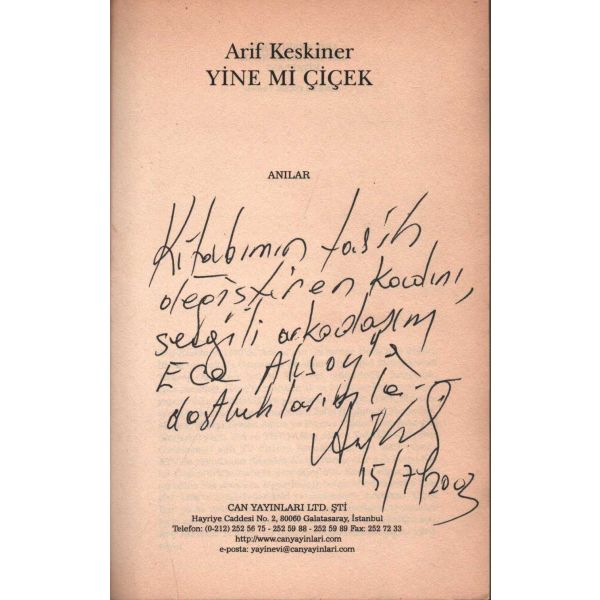 Arif Keskiner
YİNE Mİ ÇİÇEK
ANILAR
Kitabımın
değiştiren kadını,
sevgili arkadaşım
Ece Aksoy'a
dostluklarımla
15/7/2003
CAN YAYINLARI LTD. ŞTİ
Hayriye Caddesi No. 2, 80060 Galatasaray, İstanbul
Telefon: (0-212) 252 56 75 - 252 59 88 - 252 59 89 Fax: 252 72 33
http://www.canyayinlari.com
e-posta: yayinevi@canyayinlari.com